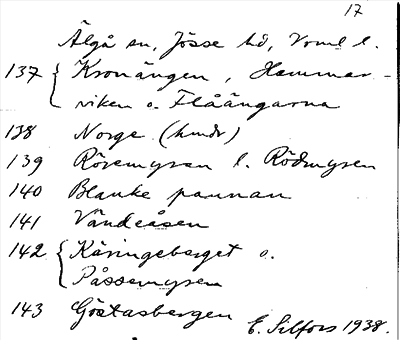 17
Älgå sn, Jösse hd, Vrml l.
137 { Kronängen, Hammar-
viken o. Flåängarna
138 Norge (hundr)
139 Rösemyren l. Rödmyren
140 Blanke pannan
141 Vändeåsen
142 { Käringeberget o.
Påssemyren
143 Göstasbergen
E. Silfors 1938.